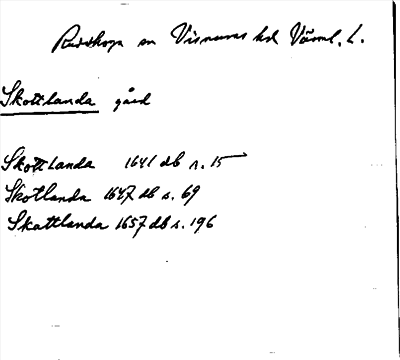 Rudskoga sn Visnums hd Värml. l.
Skottlanda gård
Skottlanda 1641 db s. 15
Skotlanda 1647 db s. 69
Skattlanda 1657 db s. 196